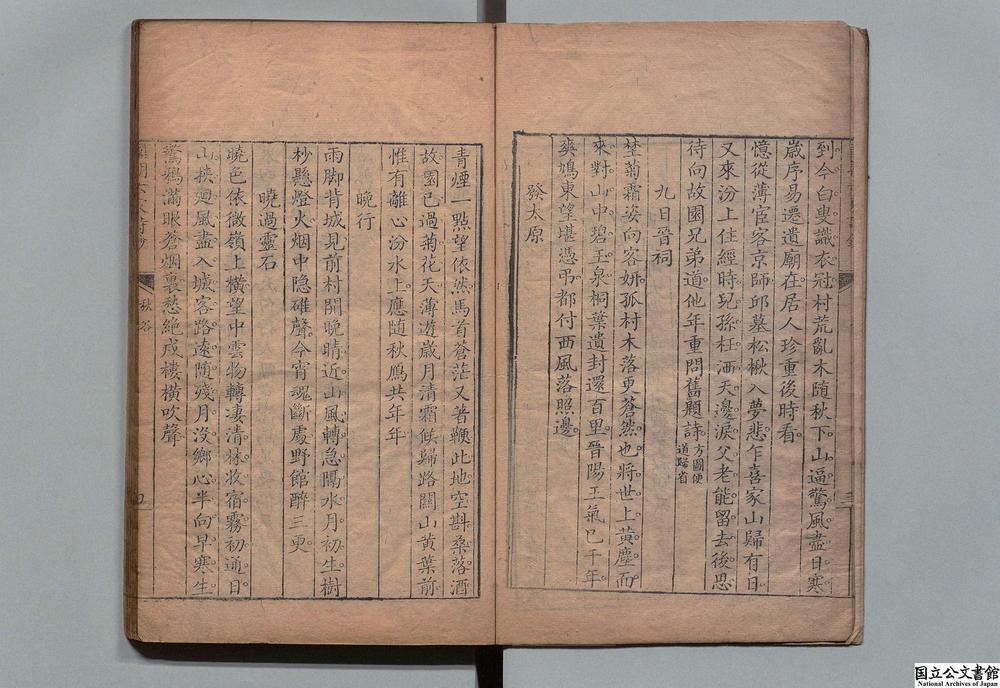 到今白叟識衣冠村荒亂木隨秋下山逼驚風盡日寒
歲序易遷遺廟在居人珍重後時看
憶從薄宦客京師邱墓松楸入夢悲乍喜家山歸有日
又來汾上住經時兒孫枉洒天邊淚父老能留去後思
待向故園兄弟道他年重問舊題詩方圖便道歸省
九日晉祠
埜菊霜姿向客妍孤村木落更蒼然也將世上黄塵面
來對山中碧玉泉桐葉遺封還百里晉陽王氣已千年
爽鳩東望堪憑弔都付西風落照邊
發太原
三
青煙一點望依然馬首蒼茫又著鞭此地空斟桑落酒
故園已過菊花天薄遊歲月清霜候歸路關山黄葉前
惟有離心汾水上應隨秋鴈共年年
晩行
雨脚背城見前村開晩晴近山風轉急隔水月初生樹
杪懸燈火烟中隐碓聲今宵魂斷處野館醉三更
曉過靈石
曉色依微嶺上横望中雲物轉凄清林收宿霧初通日
山挾廻風盡入城客路遠隨殘月没鄉心半向早寒生
驚鵶滿眼蒼烟裏愁絶戍樓横吹聲
秋谷
四
国立公文書館
National Archives of Japan